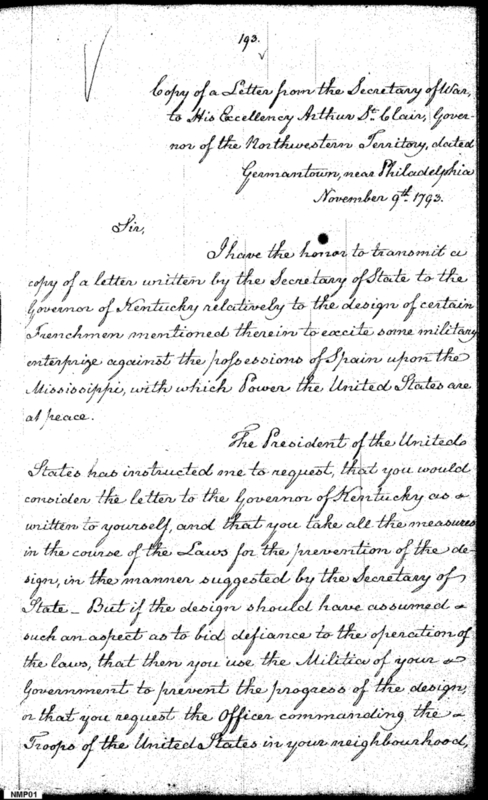 193.
Copy of a Letter from the Secretary of War,
to His Excellency Arthur St. Clair, Gover-
nor of the Northwestern Territory, dated
Germantown, near Philadelphia
November 9th. 1793.
Sir,
I have the honor to transmit a
copy of a letter written by the Secretary of State to the
Governor of Kentucky relatively to the design of certain
Frenchmen mentioned therein to excite some military
enterprize against the possessions of Spain upon the
Mississippi, with which Power the United States are
at peace.
The President of the United
States has instructed me to request, that you would
consider the letter to the Governor of Kentucky as
written to yourself, and that you take all the measures
in the course of the Laws for the prevention of the de-
sign, in the manner suggested by the Secretary of
State - But if the design should have assumed
such an aspect as to bid defiance to the operation of
the laws, that then you use the Militia of your
Government to prevent the progress of the design,
or that you request the Officer commanding the
Troops of the United States in your neighbourhood,
NMP01